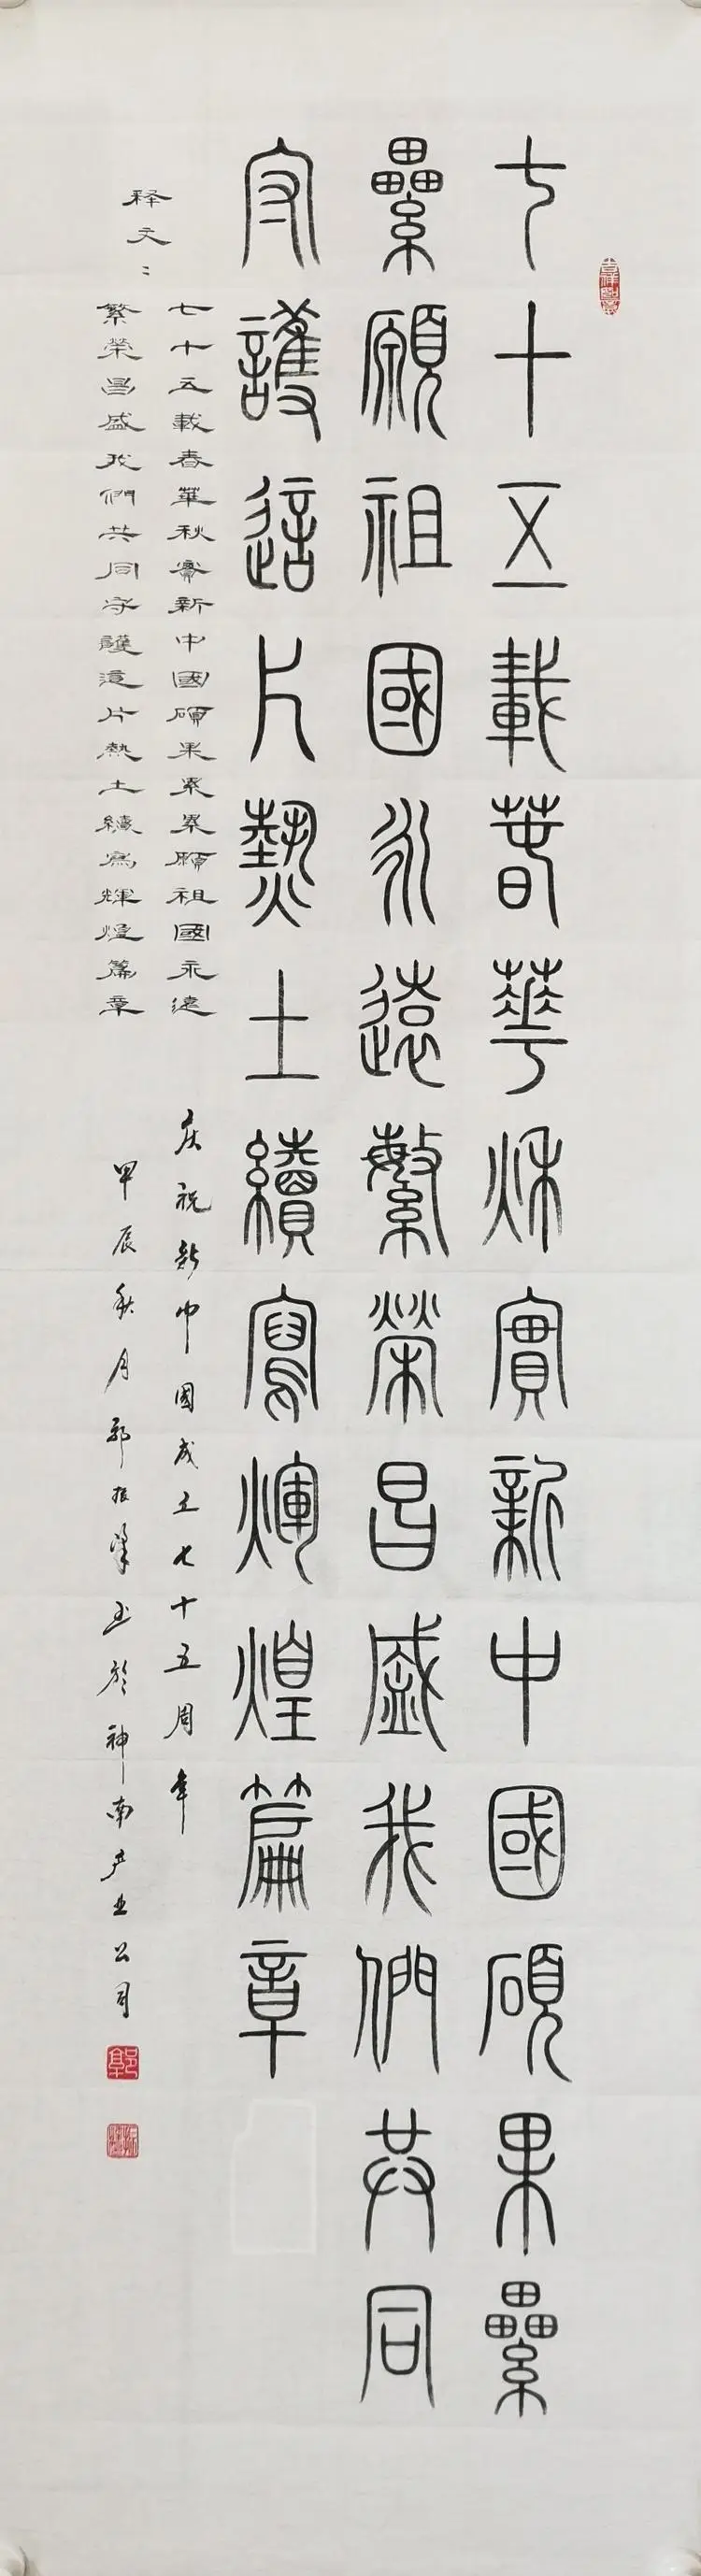 七十五載春華秋實新中國碩果纍
纍願祖國永遠繁榮昌盛我們共同
守護這片熱土續寫輝煌篇章
释文：
七十五載春華秋實新中國碩果累累願祖國永遠
繁榮昌盛我們共同守護這片熱土續寫輝煌篇章
庆祝新中国成立七十五周年
甲辰秋月郭振肇书於神南产业公司
吉祥
郭